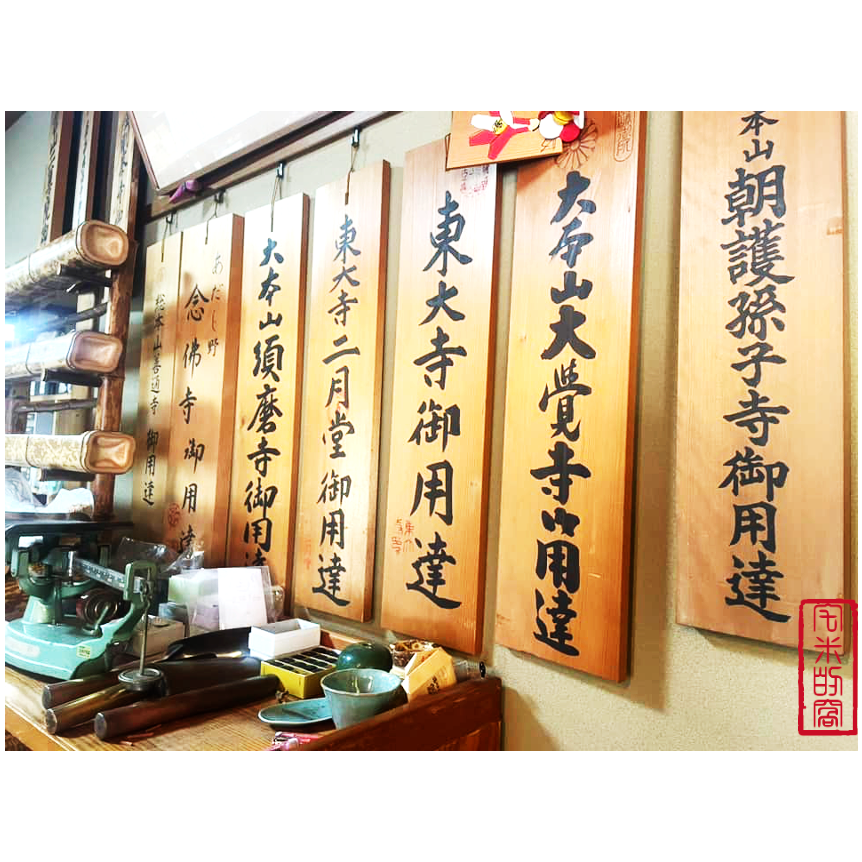 本山朝護孫子寺御用達
大本山大覺寺御用達
東大寺御用達
東大寺二月堂御用達
大本山須磨寺御用達
あだし野
念佛寺御用達
総本山善通寺 御用達
宅米的窩